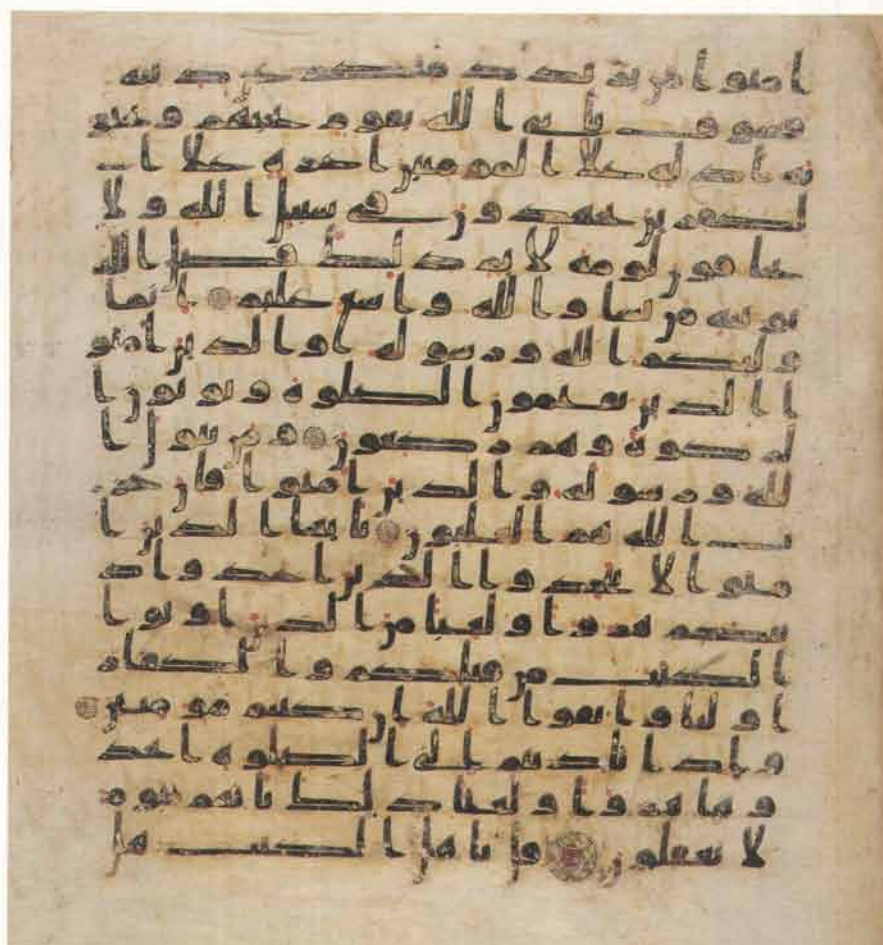 امنوا من يرتدد منكم عن دينه
فسوف ياتي الله بقوم يحبهم ويحبو
نه اذلة على المومنين اعزة على ا
لكفرين يجهدون في سبيل الله ولا
يخافون لومة لايم ذلك فضل الله
يوتيه من يشا والله واسع عليم انما
وليكم الله ورسوله والذين امنو
ا الذين يقيمون الصلوة ويوتون ا
لزكوة وهم ركعون ومن يتول ا
لله ورسوله والذين امنوا فان حز
ب الله هم الغلبون يايها الذين ا
منوا لا تتخذوا الذين اتخذوا د
ينكم هزوا ولعبا من الذين اوتوا
الكتب من قبلكم والكفار
اوليا واتقوا الله ان كنتم مومنين
واذا ناديتم الى الصلوة اتخذ
وها هزوا ولعبا ذلك بانهم قوم
لا يعقلون قل ياهل الكتب هل